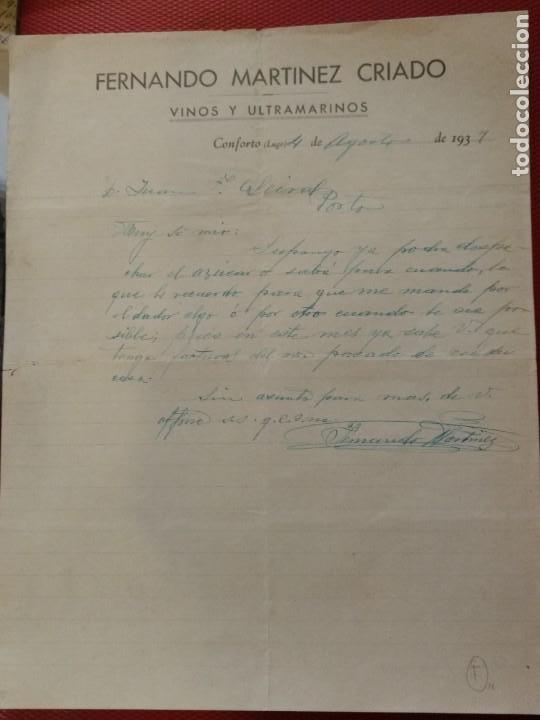 FERNANDO MARTINEZ CRIADO
VINOS Y ULTRAMARINOS
Conforto (Lugo) 4 de Agosto de 1937
D. Juan
Porto
Muy Sr mio:
Supongo ya podra despa
char el azúcar ó sabrá para cuando, lo
que le recuerdo para que me mande por
el dador algo ó por otro cuando le sea po
sible; pues en este mes ya sabe V. que
tengo factura del mes pasado de
casa
Sin asunto para mas, de V.
affmo ss. q.e.s.m.
Fernando Martinez
todocoleccion.net